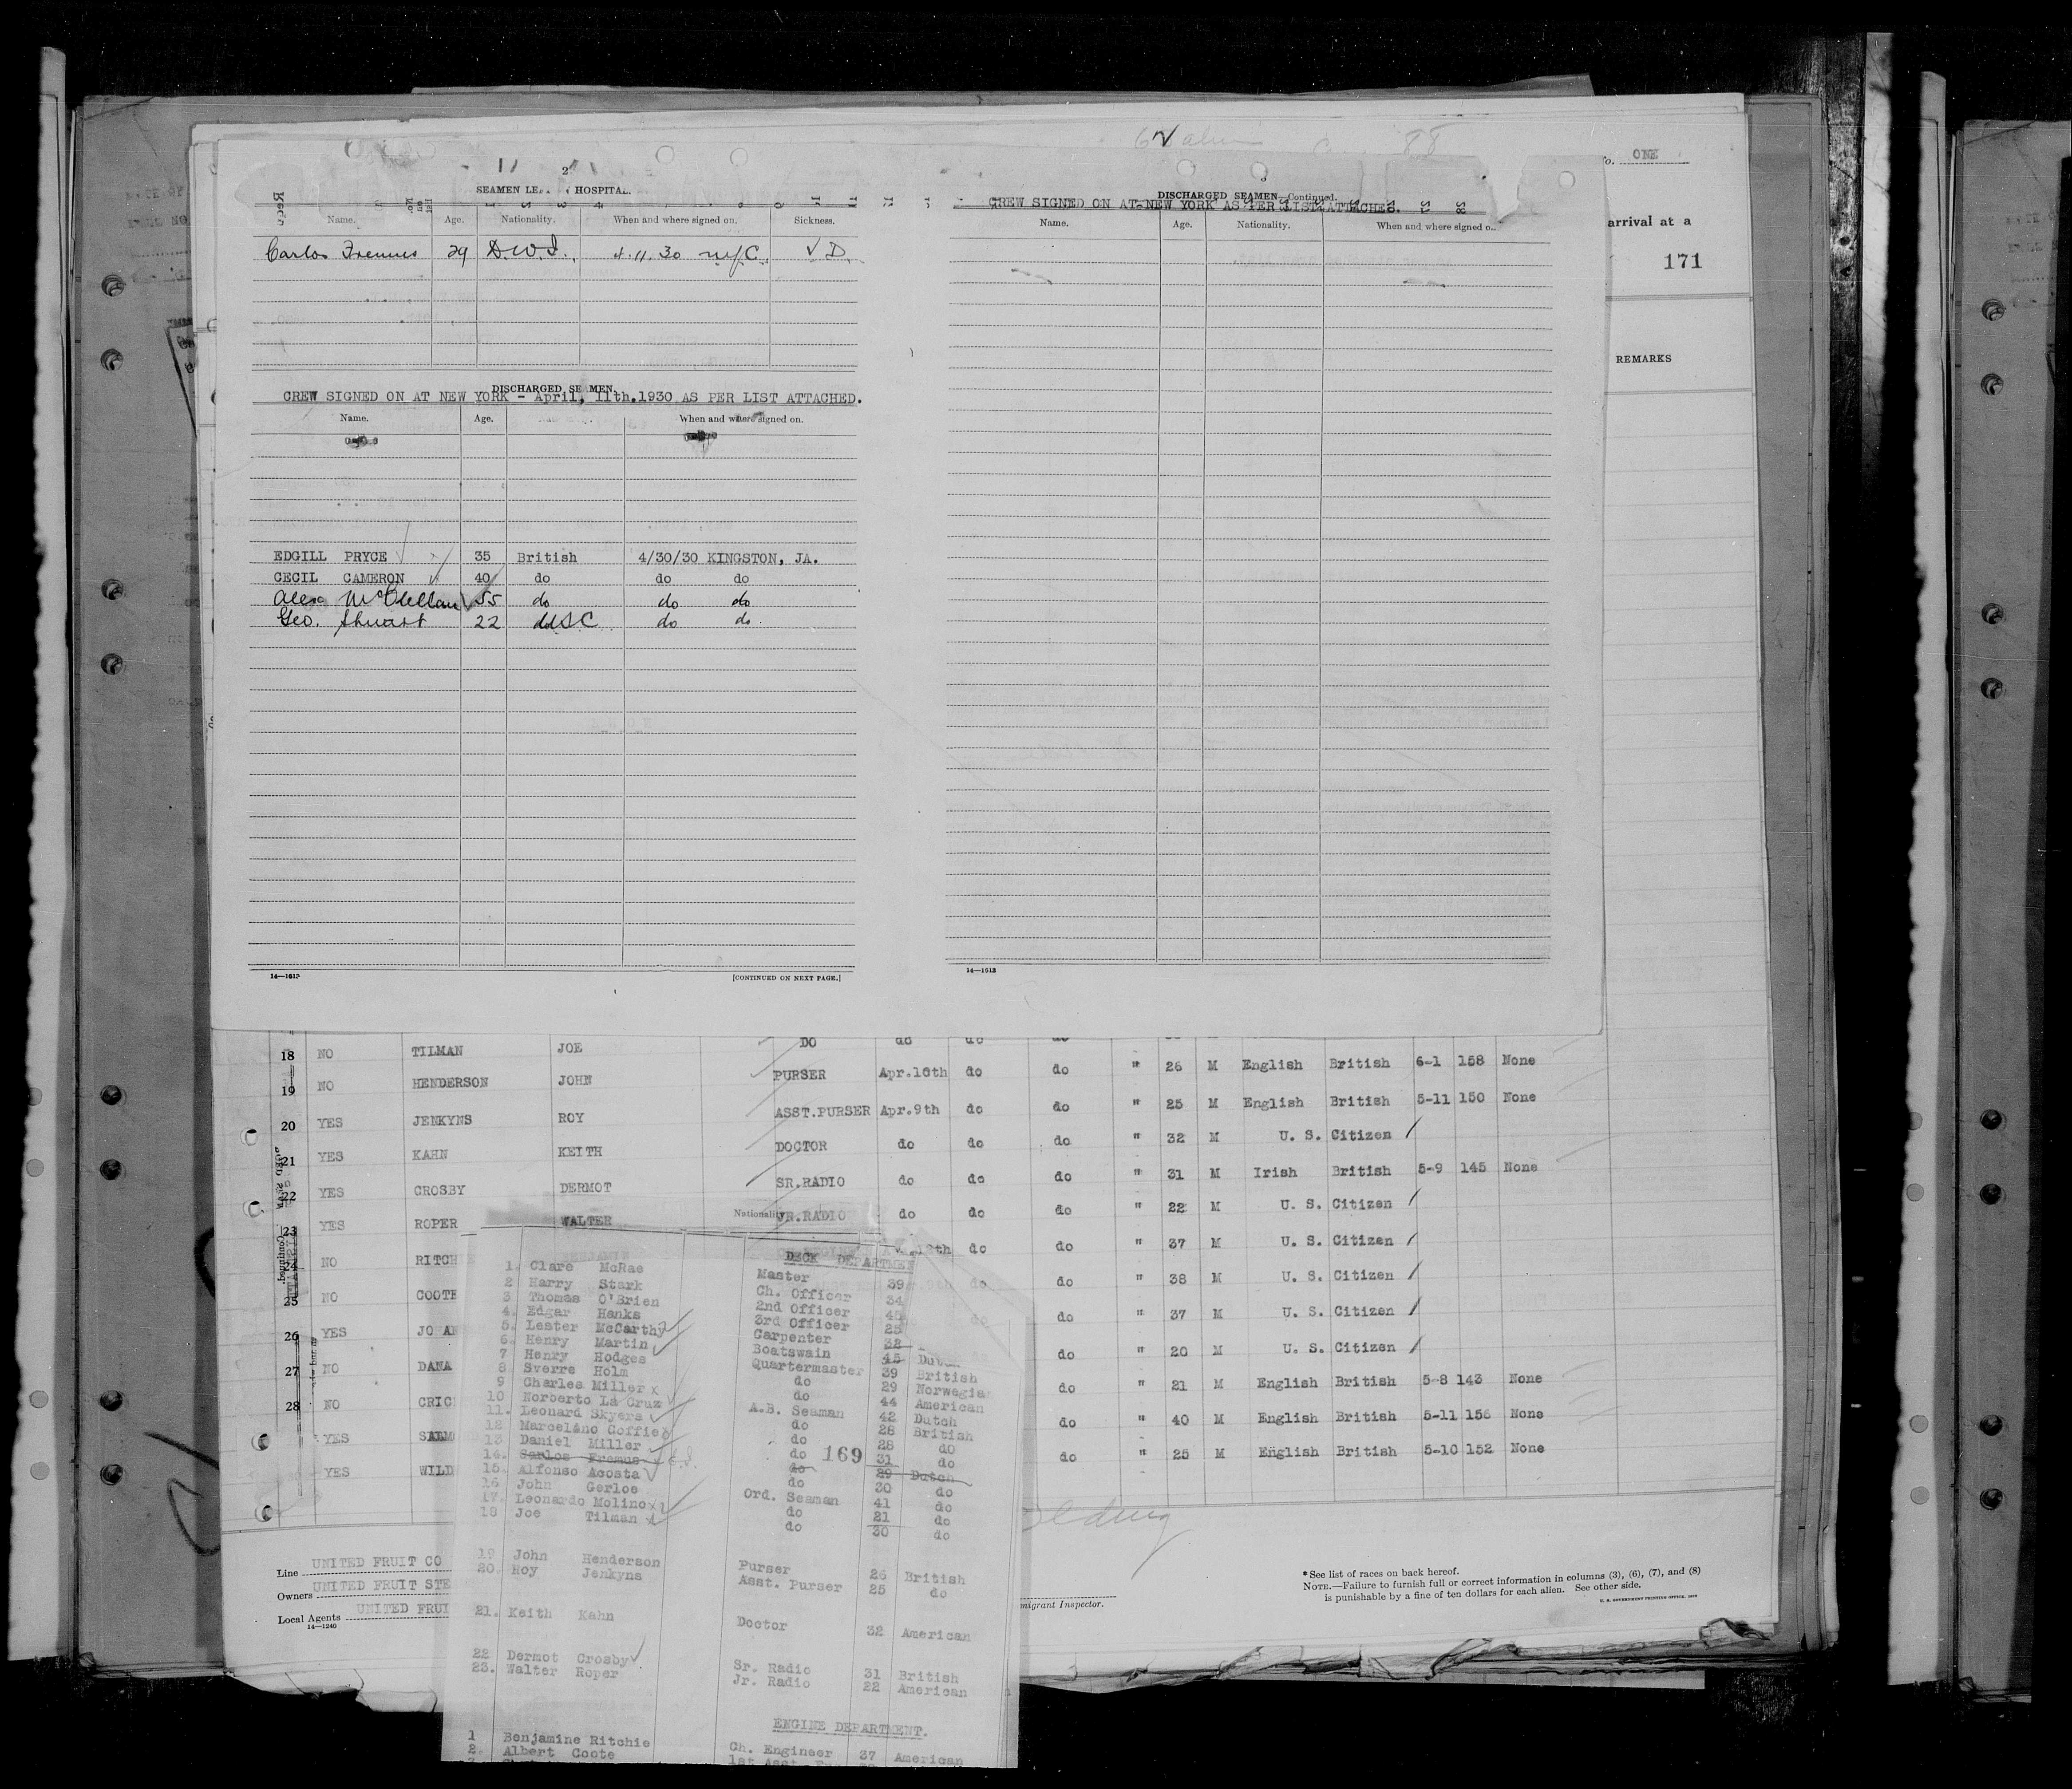 ONE
arrival at a
171
REMARKS
2
SEAMEN HOSPITAL.
Name. Age. Nationality. When and where signed on. Sickness.
Carlos 29 D.W.I. 4.11.30 N.Y.C. V D.
DISCHARGED SEAMEN.
CREW SIGNED ON AT NEW YORK - April, 11th.1930 AS PER LIST ATTACHED.
Name. Age. When and where signed on.
EDGILL PRYCE 35 British 4/30/30 KINGSTON, JA.
CECIL CAMERON 40 do do do
Alex McClellan 55 do do do
Geo. Stuart 22 do USC do do.
14—1613 [CONTINUED ON NEXT PAGE.]
DISCHARGED SEAMEN—Continued.
CREW SIGNED ON AT NEW YORK AS PER LIST ATTACHED.
Name. Age. Nationality. When and where signed
14—1613
18 NO TILMAN JOE DO do do do
19 NO HENDERSON JOHN PURSER Apr.16th do do " 26 M English British 6-1 158 None
20 YES JENKYNS ROY ASST.PURSER Apr.9th do do " 25 M English British 5-11 150 None
21 YES KAHN KEITH DOCTOR do do do " 32 M U. S. Citizen
22 YES CROSBY DERMOT SR.RADIO do do do " 31 M Irish British 5-9 145 None
23 YES ROPER WALTER JR.RADIO do do do " 22 M U. S. Citizen
24 NO RITCH do do " 37 M U. S. Citizen
25 NO COOTE do do " 38 M U. S. Citizen
26 YES do do " 37 M U. S. Citizen
27 NO DANA do " 20 M U. S. Citizen
28 NO CRIC do " 21 M English British 5-8 143 None
YES do " 40 M English British 5-11 156 None
YES WILD do " 25 M English British 5-10 152 None
Nationality
DECK DEPARTMEN
1. Clare McRae Master 39
2 Harry Stark Ch. Officer 34
3 Thomas O'Brien 2nd Officer
4. Edgar Hanks 3rd Officer 25
5. Lester McCarthy Carpenter 32
6. Henry Martin Boatswain 45
7 Henry Hodges Quartermaster 39 British
8 Sverre Holm do 29 Norwegia
9 Charles Miller do 44 American
10 Norberto La Cruz A.B. Seaman 42 Dutch
11. Leonard Skyers do 28 British
12 Marcelino Coffie do 28 do
13 Daniel Miller do 169 31 do
14. do 29 Dutch
15. Alfonso Acosta do 30 do
16 John Gerloe Ord. Seaman 41 do
17. Leonardo Molino do 21 do
18 Joe Tilman do 30 do
19 John Henderson Purser 26 British
20. Roy Jenkyns Asst. Purser 25 do
21. Keith Kahn Doctor 32 American
22 Dermot Crosby Sr. Radio 31 British
23. Walter Roper Jr. Radio 22 American
ENGINE DEPARTMENT.
1 Benjamine Ritchie Ch. Engineer 37 American
2. Albert Coote 1st Asst.
Line UNITED FRUIT CO
Owners UNITED FRUIT STE
Local Agents UNITED FRUI
14—1240
migrant Inspector.
* See list of races on back hereof.
NOTE.—Failure to furnish full or correct information in columns (3), (6), (7), and (8)
is punishable by a fine of ten dollars for each alien. See other side.
U. S. GOVERNMENT PRINTING OFFICE.